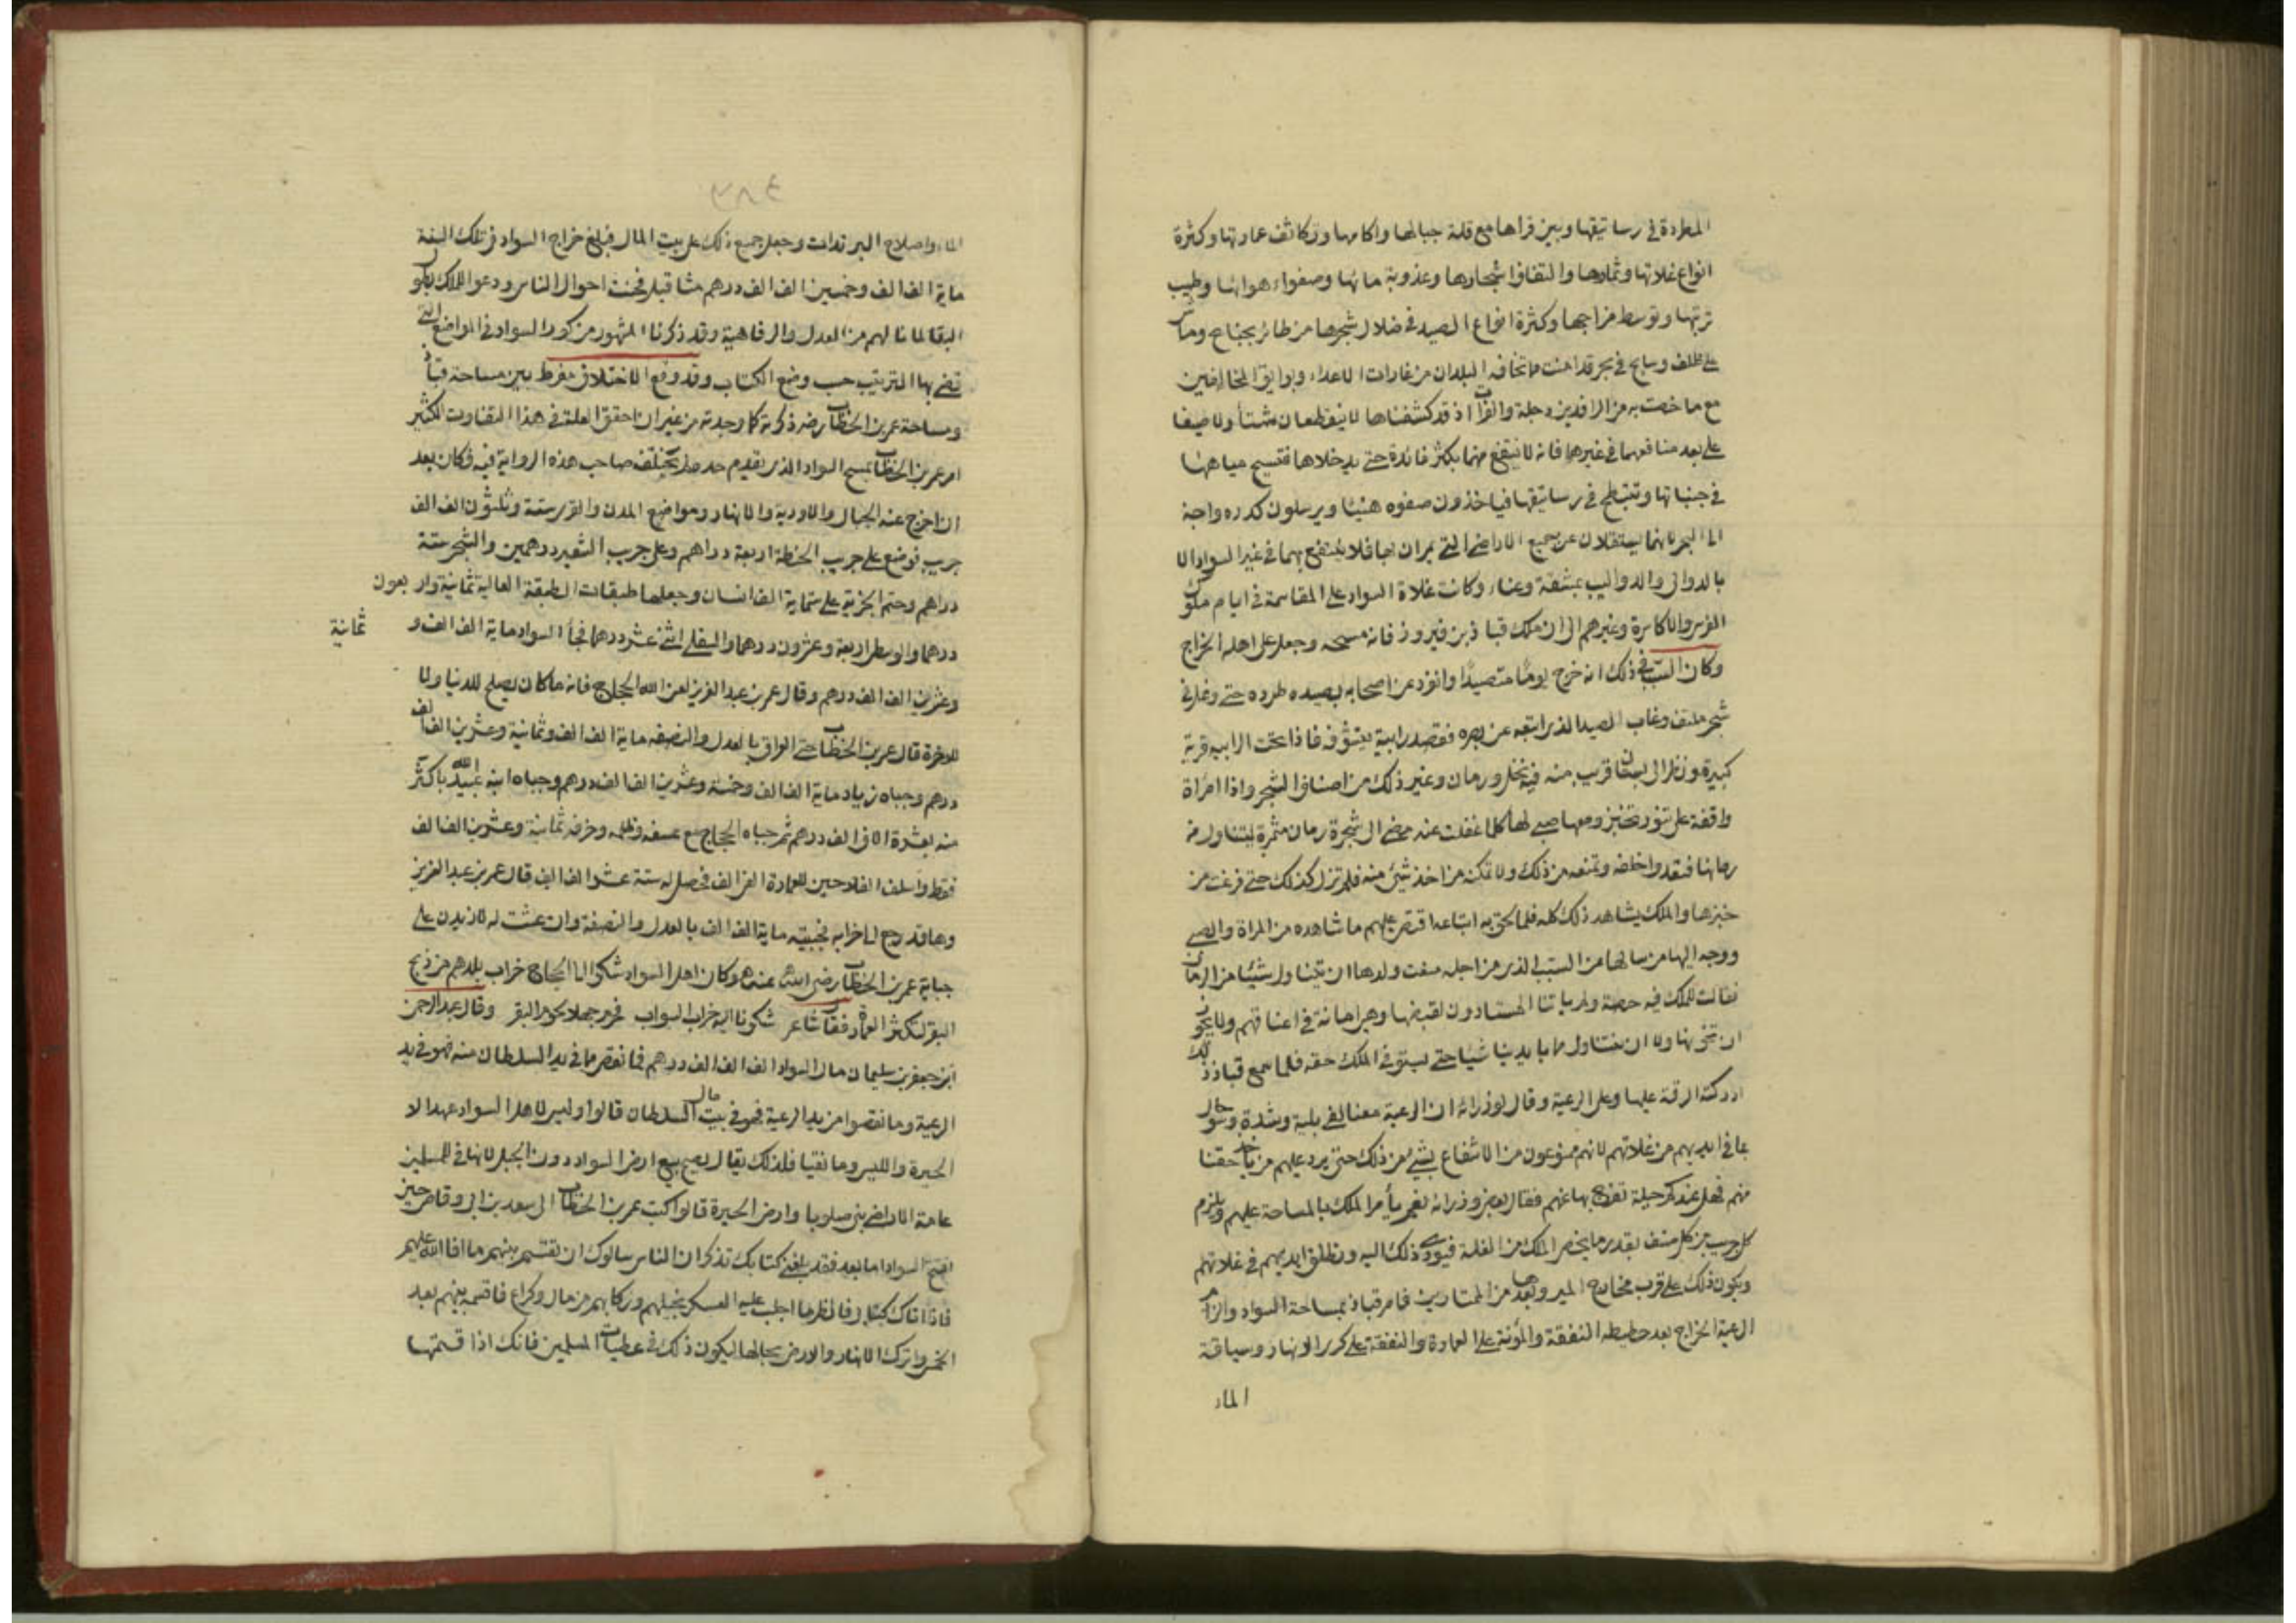 المطردة في رساتيقها وبين قراها مع قلة جبالها واكامها وتكاثف عمارتها وكثرة
انواع غلاتها وثمارها والتفاف اشجارها وعذوبة مائها وصفواء هوائها وطيب
تربتها وتوسط مزاجها وكثرة انواع الصيد في ضلال شجرها من طائر بجناح وماش
على ظلف وسابح في بحر قد امنت مما تخافه البلدان من غارات الاعداء وبوايق المخالفين
مع ما خصت به من الرافدين دجلة والفرات اذ قد كشفناها لا ينقطعان مشتأ ولا صيفا
على بعد منافعهما في غيرها فانه لا ينتفع منهما بكثر فائدة حتى يدخلاها فتسيح مياههما
في جنباتها وتنبطح في رساتيقها فياخذون صفوه هنيئا ويرسلون كدره واجنه
الى البحر لانهما يستقلان عن جميع الاراضي التي يمران بها فلا ينتفع بهما في غير السواد الا
بالدوالي والدواليب بمشقة وعناء وكانت غلاة السواد على المقاسمة في ايام ملوك
الفرس والاكاسرة وغيرهم الى ان ملك قباذ بن فيروز فانه مسحه وجعل على اهله الخراج
وكان السبب في ذلك انه خرج يومًا متصيدًا وانفرد عن اصحابه بصيده طرده حتى وغل في
شجر ملتف وغاب الصيد الذي اتبعه عن بصره فقصد رابية يتشوف فاذا تحت الرابية قرية
كبيرة ونظر الى بستان قريب منه فيه نخل ورمان وغير ذلك من اصناف الشجر واذا امراة
واقفة على تنور تخبز ومعها صبي لها كلما غفلت عنه مضى الى شجرة رمان مثمرة ليتناول من
رمانها فتعدوا خلفه وتمنعه من ذلك ولا تمكنه من اخذ شئ منه فلم تزل كذلك حتى فرغت من
خبزها والملك يشاهد ذلك كله فلما لحق به اتباعه اقتص عليهم ما شاهده من المراة والصبي
ووجه اليها من سالها عن السبب الذي من اجله منعت ولدها ان يتناول شيئا من الرمان
فقالت للملك فيه حصة ولم ياتنا المستادون لقبضها وهي امانة في اعناقهم ولا يجوز
ان نخونها ولا ان نتناول مما بايدينا شيا حتى يستوفي الملك حقه فلما سمع قباذ ذلك
ادركته الرقة عليها وعلى الرعية وقال لوزرائه ان الرعية معنا لفي بلية وشدة وسوء حال
بما في ايديهم من غلاتهم لانهم ممنوعون من الانتفاع بشئ من ذلك حتى يرد عليهم من ياخذ حقنا
منهم فهل عندكم حيلة نفرج بها عنهم فقال بعض وزرائه نعم يأمر الملك بالمساحة عليهم ويلزم
كل جريب من كل صنف بقدر ما يخص الملك من الغلة فيودى ذلك اليه ونطلق ايديهم في غلاتهم
ويكون ذلك على قرب مخارج المير وبعدها من الممتارين فامر قباذ بمساحة السواد والزام
الرعية الخراج بعد حطيطه النفقة والمؤنة على العمارة والنفقة على كرى الانهار وسياقة
الماء
٣٨٤
الماء واصلاح البريدات وجعل جميع ذلك على بيت المال فبلغ خراج السواد في تلك السنة
ماية الف الف وخمسين الف الف درهم مثاقيل فحسنت احوال الناس ودعوا للملك بطول
البقا لما نالهم من العدل والرفاهية وقد ذكرنا المشهور من كور السواد في المواضع التي
قضى بها الترتيب حسب وضع الكتاب وقد وقع الاختلاف مفرط بين مساحة قباذ
ومساحة عمر بن الخطاب رضه ذكرته كما وجدته من غير ان احقق العلة في هذا التفاوت الكثير
امر عمر بن الخطاب بمسح السواد الذي تقدم حده لم يختلف صاحب هذه الرواية فيه فكان بعد
ان اخرج عنه الجبال والاودية والانهار ومواضع المدن والقرى ستة وثلثون الف الف
جريب فوضع على جريب الحنطة اربعة دراهم وعلى جريب الشعير درهمين والشجر ستة
دراهم وختم الجزية على ستماية الف انسان وجعلها طبقات الطبقة العالية ثمانية واربعون
درهما والوسطى اربعة وعشرون درهما والسفلى اثنى عشر درهما فجأ السواد ماية الف الف و ثمانية
وعشرين الف الف درهم وقال عمر بن عبد العزيز لعن الله الحجاج فانه ما كان يصلح للدنيا ولا
للاخرة قال عمر بن الخطاب جبى العراق بالعدل والنصفه ماية الف الف وثمانية وعشرين الف الف
درهم وجباه زياد ماية الف الف وخمسة وعشرين الف الف درهم وجباه ابنه عبيد الله باكثر
منه بعشرة الاف الف درهم ثم جباه الحجاج مع عسفه وظلمه وخرقه ثمانية وعشرين الف الف
فقط واسلف الفلاحين للعمارة الفي الف فحصل له ستة عشر الف الف قال عمر بن عبد العزيز
وها قد رجع الي خرابه فجبيته ماية الف الف بالعدل والنصفة وان عشت له لازيدن على
جباية عمر بن الخطاب رضى الله عنه وكان اهل السواد شكوا الى الحجاج خراب بلدهم من ذبح
البقر لتكثر العمارة فقال شاعر شكونا اليه خراب السواب فحرم جهلا لحوم البقر وقال عبد الرحمن
ابن جعفر بن سليمان مال السواد الف الف الف درهم فما نقص مما في يد السلطان منه فهو في يد
الرعية وما نقصوا من يد الرعية فهو في بيت مال السلطان قالوا وليس لاهل السواد عهد الا
الحيرة والليس وما نقيا فلذلك يقال لا يصح بيع ارض السواد دون الجبل لانها فئ للمسلمين
عامة الا اراضي بني صلوبا وارض الحيرة قالوا كتب عمر بن الخطاب الى سعد بن ابى وقاص حين
افتح السواد اما بعد فقد بلغني كتابك تذكر ان الناس سالوك ان تقسم بينهم ما افا الله عليهم
فاذا اتاك كتابي فانظر ما اجلب عليه العسكر بخيلهم وركابهم من مال وكراع فاقسمه بينهم بعد
الخمس واترك الانهار والارض بحالها ليكون ذلك في عطيات المسلمين فانك اذا قسمتها